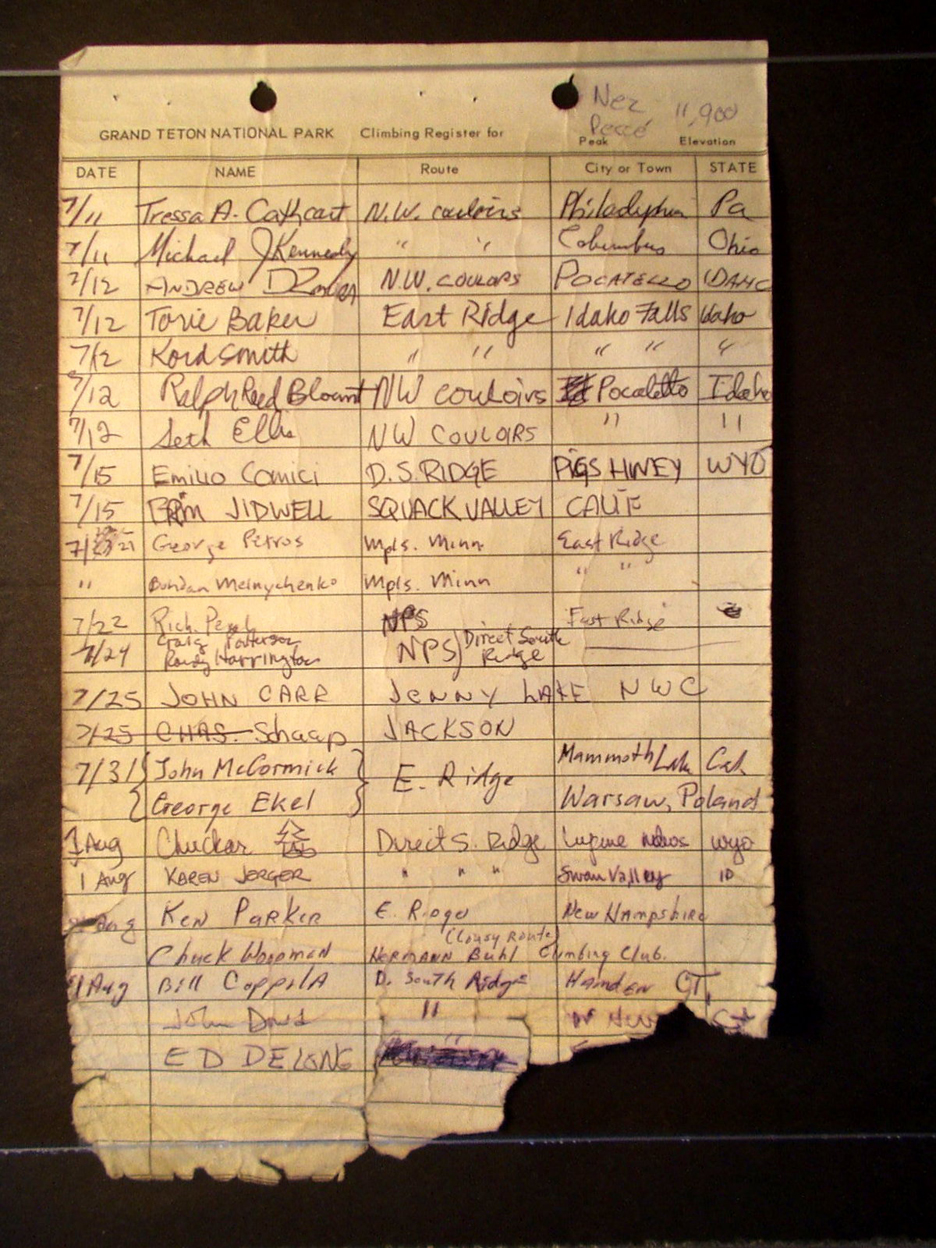 Nez 11,900
Percé
GRAND TETON NATIONAL PARK Climbing Register for
Peak Elevation
DATE NAME Route City or Town STATE
7/11 Tressa A. Cathcart N.W. couloirs Philadelphia Pa
7/11 Michael J Kennedy " " Columbus Ohio
7/12 ANDREW N.W. COULOIRS POCATELLO IDAHO
7/12 Torie Baker East Ridge Idaho Falls Idaho
7/12 Kord Smith " " " " "
7/12 Ralph Reed Blount NW couloirs Pocatello Idaho
7/12 Seth Ellis NW COULOIRS " "
7/15 Emilio Comici D.S. RIDGE PIGS HINEY WYO
7/15 JIDWELL SQUACK VALLEY CALIF
7/21 George Petros Mpls. Minn. East Ridge
" Bohdan Melnychenko Mpls. Minn " "
7/22 Rich NPS East Ridge
Craig Patterson Direct South
7/24 Randy Harrington NPS Ridge
7/25 JOHN CARR JENNY LAKE NWC
7/25 CHAS. Schaap JACKSON
7/31 { John McCormick } E. Ridge Mammoth Lake Cal.
{ George Ekel } Warsaw, Poland
1 Aug Chuckar Direct S. Ridge Lupine Wyo
1 Aug KAREN JERGER " " " Swan Valley ID
Aug KEN PARKER E. Ridge New Hampshire
(Lousy Route)
Chuck Woopman HERMANN Buhl Climbing Club.
Aug Bill Coppola D. South Ridge Hamden CT.
John "
ED DELONG